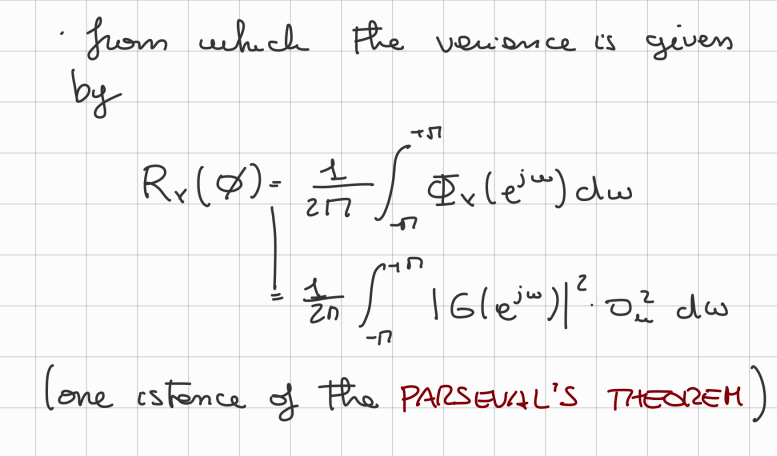 · from which the variance is given
by
Rₓ(0) = 1/2π ∫_{-π}^{+π} Φₓ(e^{jω}) dω
= 1/2π ∫_{-π}^{+π} |G(e^{jω})|² · σᵤ² dω
(one istance of the PARSEVAL'S THEOREM)